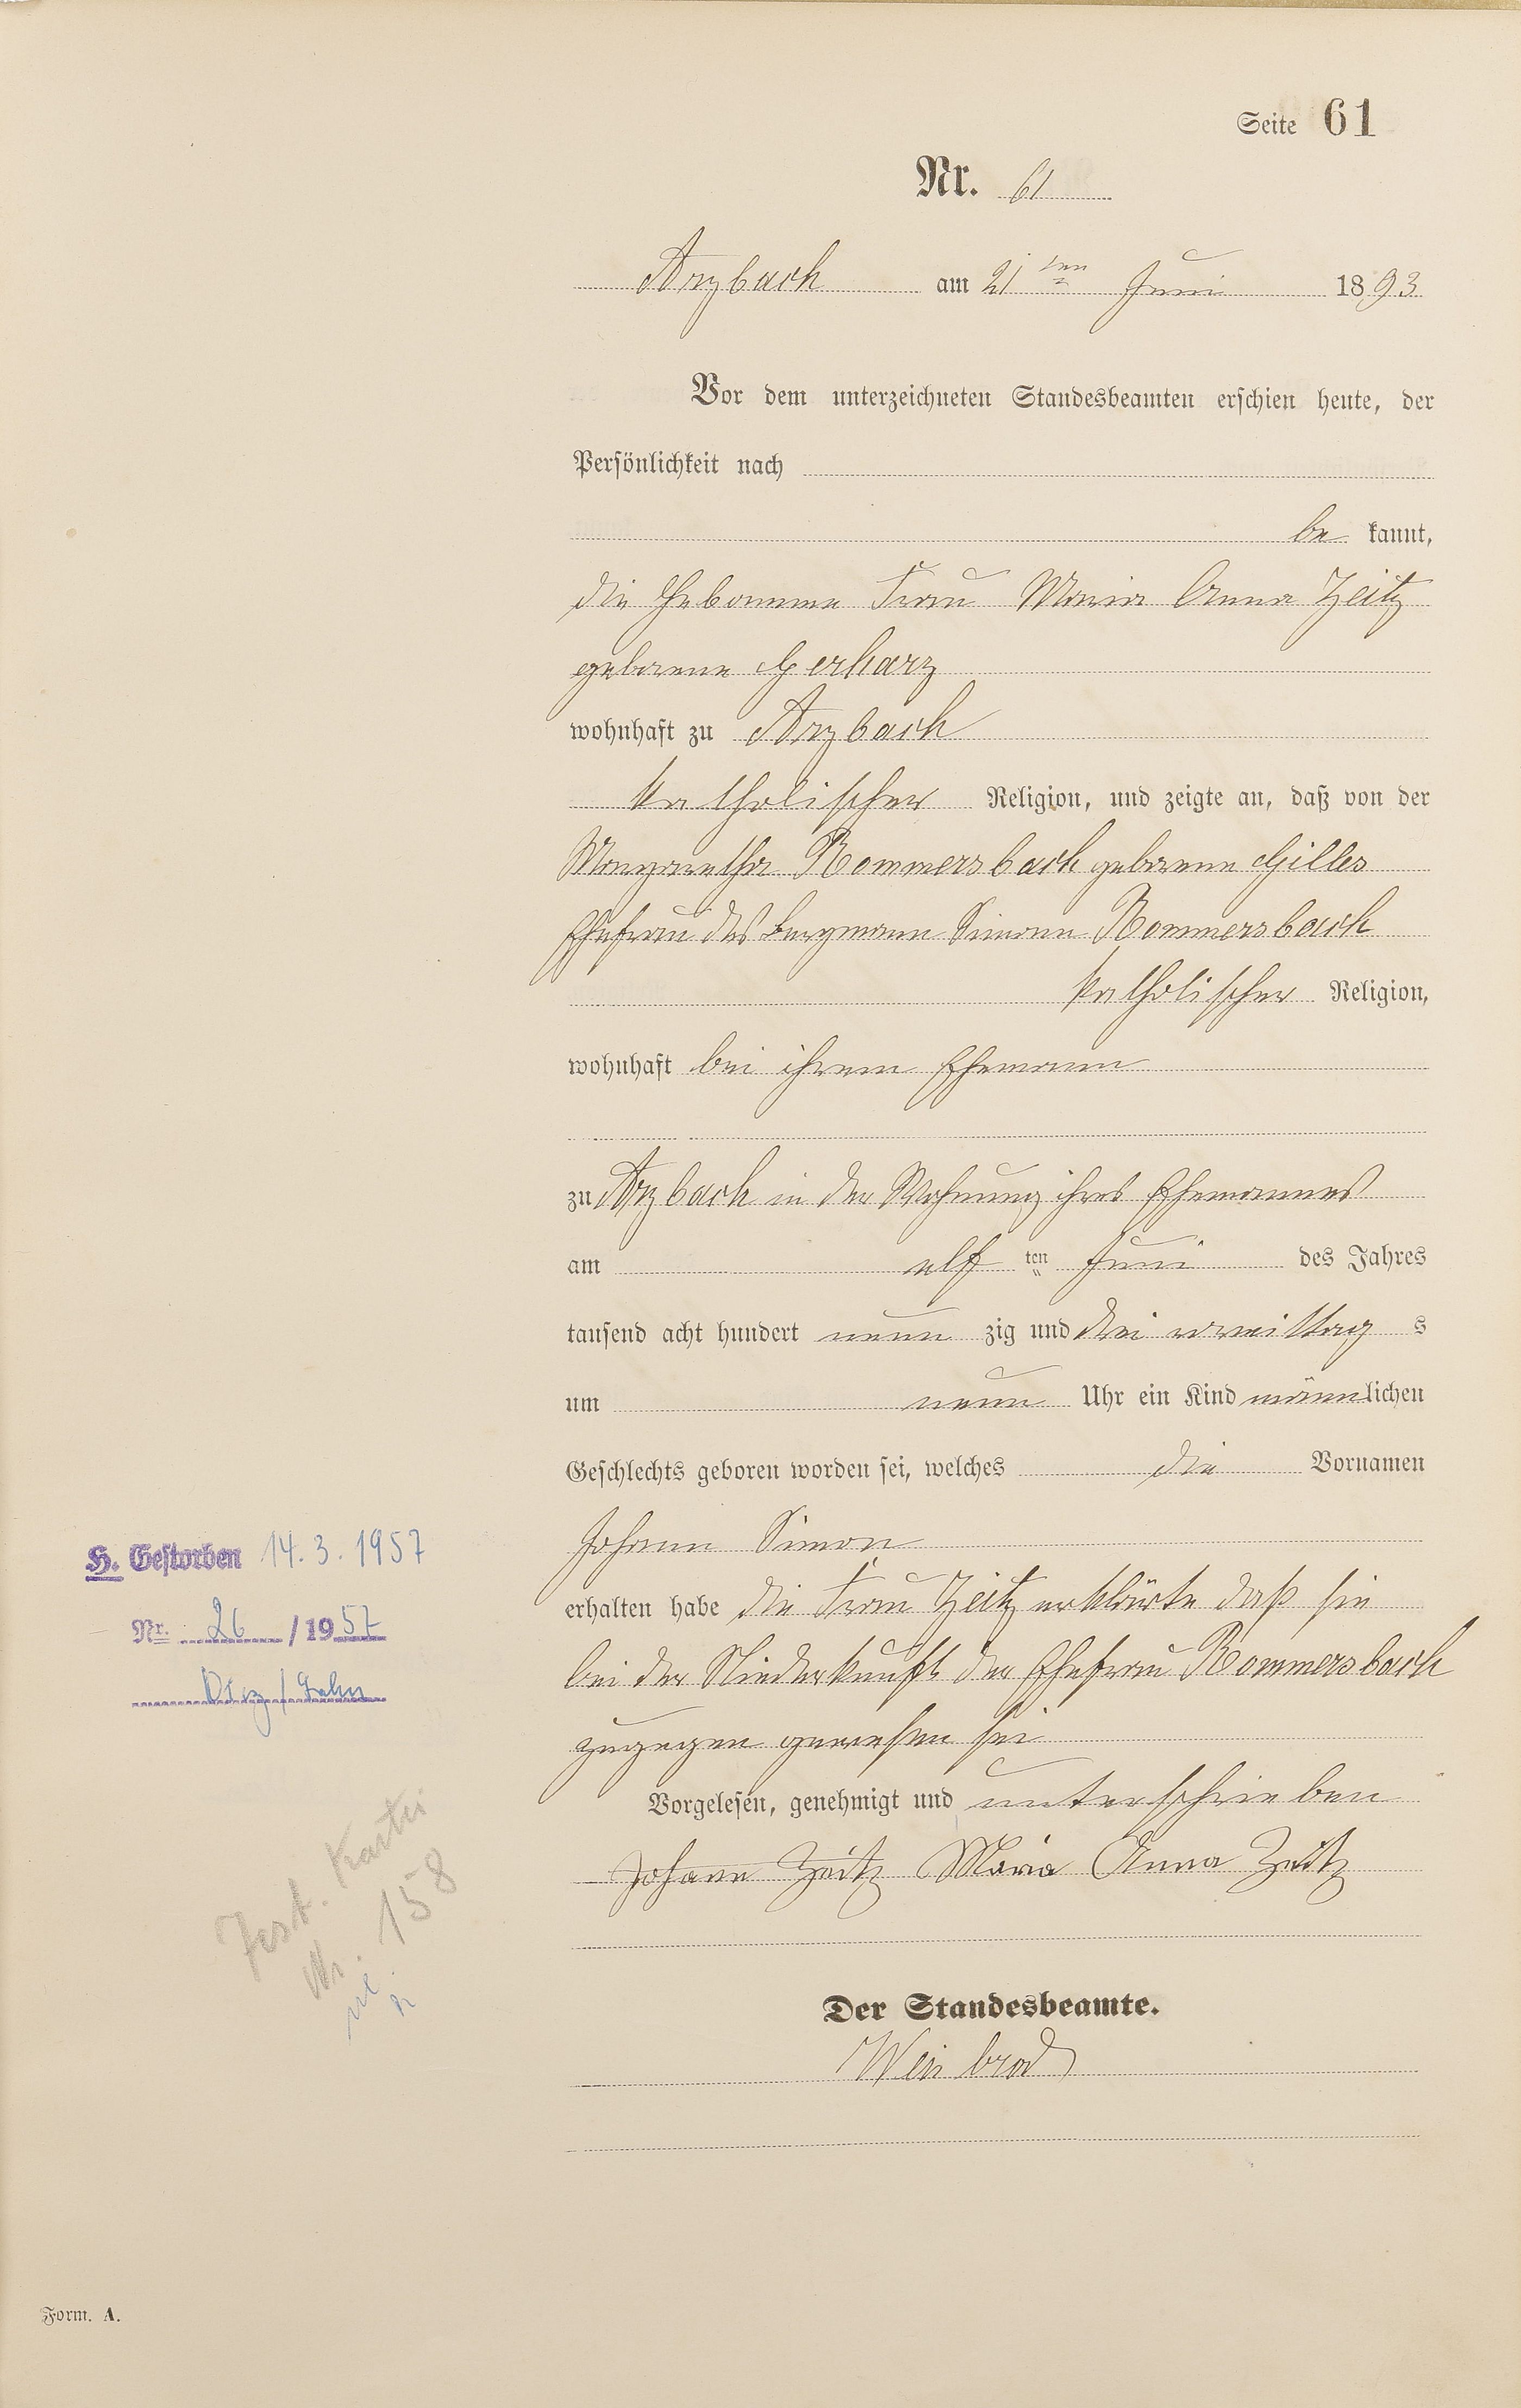 Seite 61
Nr. 61
Arzbach am 21ten Juni 1893
Vor dem unterzeichneten Standesbeamten erschien heute, der
Persönlichkeit nach
be kannt,
die Hebamme Frau Maria Anna Zeitz
geborene Gerharz
wohnhaft zu Arzbach
katholischer Religion, und zeigte an, daß von der
Margaretha Rommersbach geborene Gilles
Ehefrau des Bergmann Simon Rommersbach
katholischer Religion,
wohnhaft bei ihrem Ehemann
zu Arzbach in der Wohnung ihres Ehemannes
am elf ten Juni des Jahres
tausend acht hundert neun zig und drei vormittag s
um neun Uhr ein Kind männlichen
Geschlechts geboren worden sei, welches die Vornamen
Johann Simon
H. Gestorben 14.3.1957
erhalten habe die Frau Zeitz erklärte daß sie
Nr. 26 / 1957
bei der Niederkunft der Ehefrau Rommersbach
Diez / Lahn
zugegen gewesen sei
Vorgelesen, genehmigt und unterschrieben
Johann Zeitz Maria Anna Zeitz
Kartei
Nr. 158
Der Standesbeamte.
Weinbrod
Form. A.